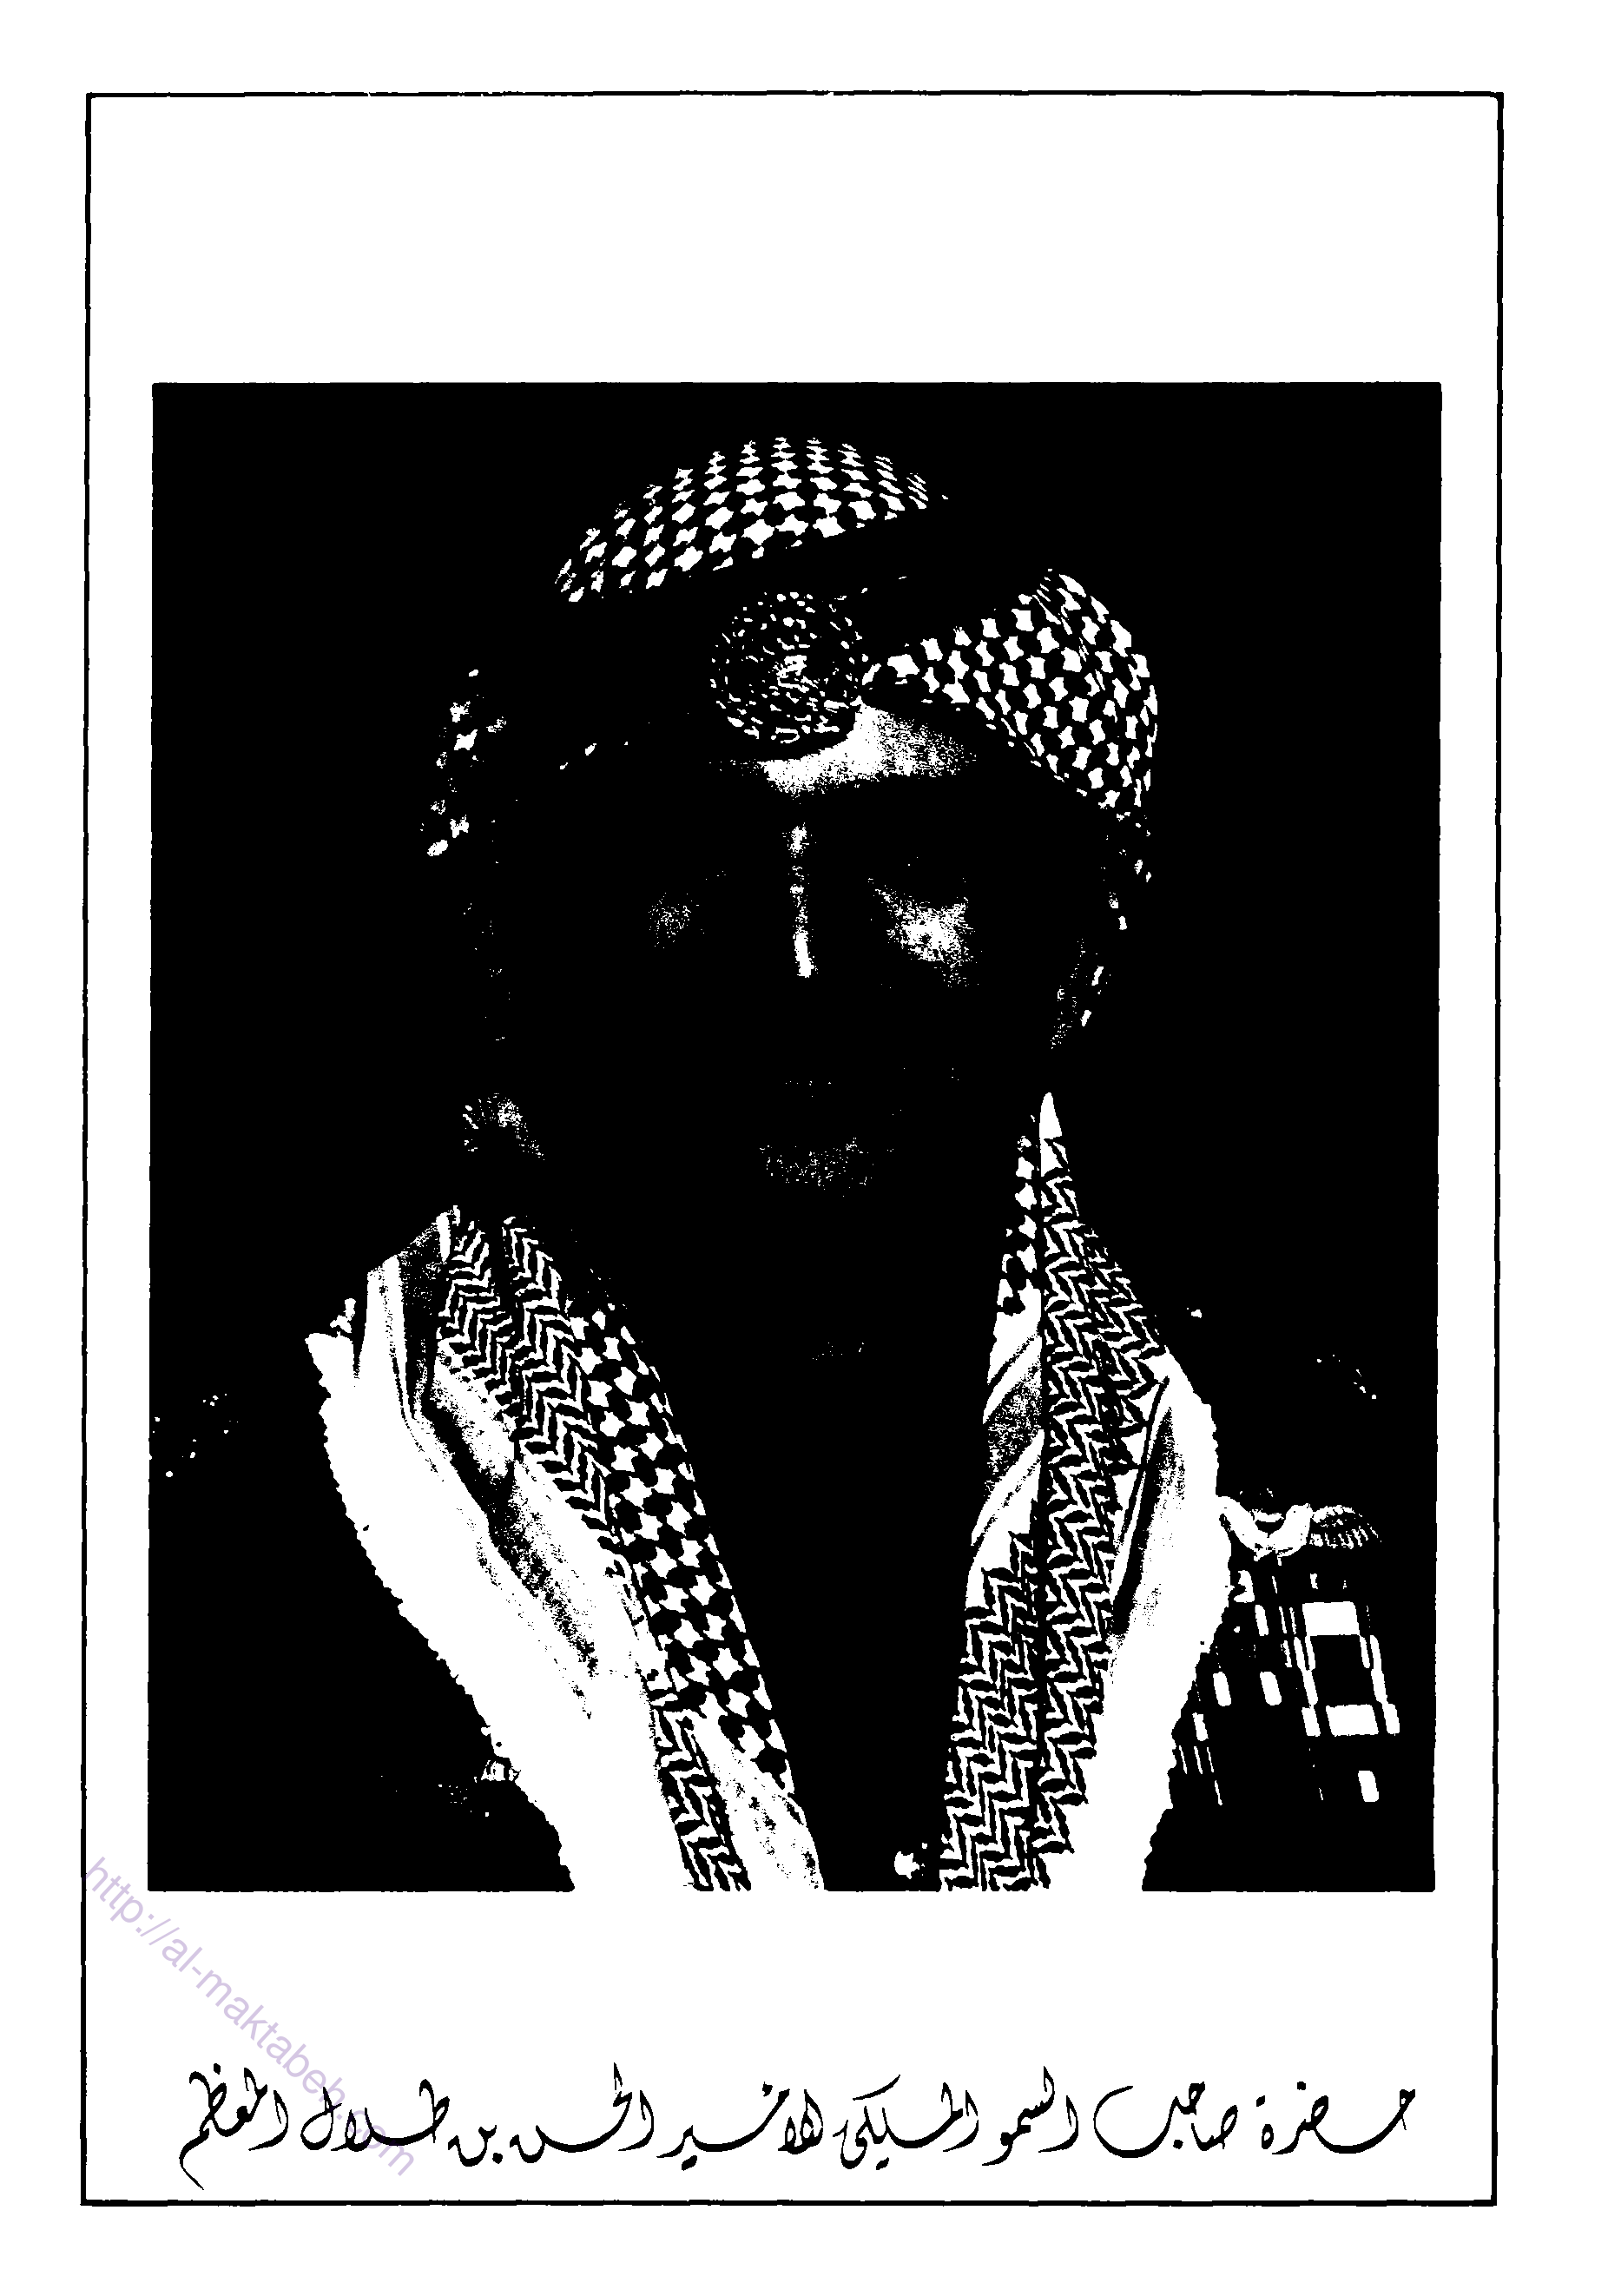 حضرة صاحب السمو الملكي الامير الحسن بن طلال المعظم
http://al-maktabeh.com